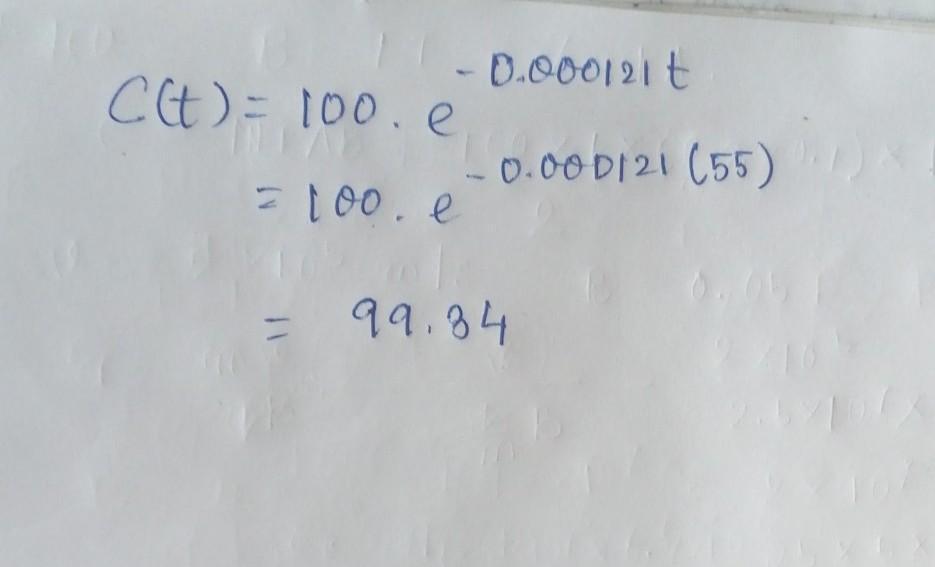 C(t) = 100 . e^-0.000121t
= 100 . e^-0.000121(55)
= 99.34